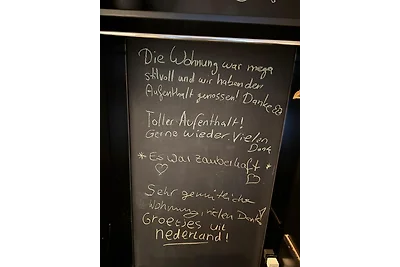 Die Wohnung war mega
stilvoll und wir haben den
Aufenthalt genossen! Danke
Toller Aufenthalt!
Gerne wieder. Vielen
Dank
* Es war zauberhaft *
Sehr gemütliche
Wohnung, vielen Dank
Groetjes uit
nederland!